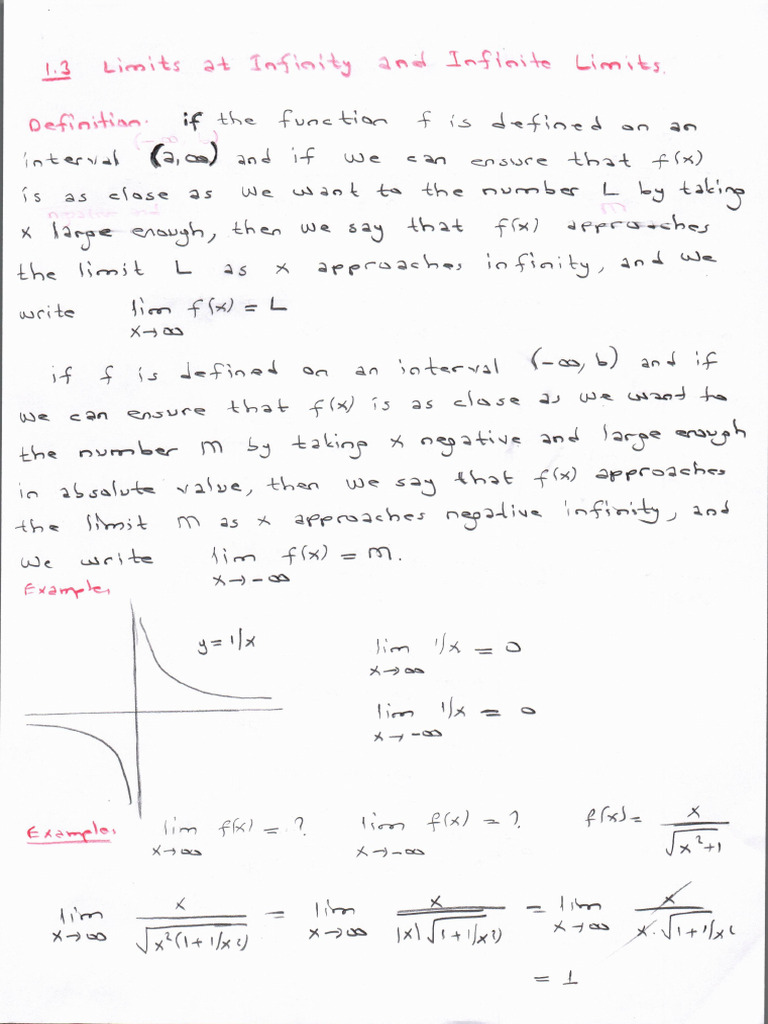 1.3 Limits at Infinity and Infinite Limits.
Definition. if the function f is defined on an
interval (a,∞) and if we can ensure that f(x)
is as close as we want to the number L by taking
x large enough, then we say that f(x) approaches
the limit L as x approaches infinity, and we
write lim f(x) = L
x→∞
if f is defined on an interval (-∞, b) and if
we can ensure that f(x) is as close as we want to
the number M by taking x negative and large enough
in absolute value, then we say that f(x) approaches
the limit M as x approaches negative infinity, and
we write lim f(x) = M.
x→-∞
Example.
y = 1/x
lim 1/x = 0
x→∞
lim 1/x = 0
x→-∞
Example. lim f(x) = ? lim f(x) = ? f(x) = x/√(x²+1)
x→∞ x→-∞
lim x/√(x²(1+1/x²)) = lim x/(|x|√(1+1/x²)) = lim x/(x·√(1+1/x²))
x→∞ x→∞ x→∞
= 1